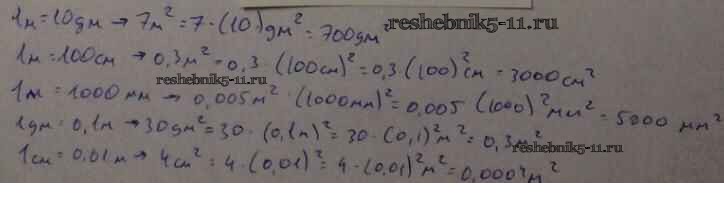 1м=10дм → 7м²=7·(10)²дм²=700дм² reshebnik5-11.ru
1м=100см → 0,3м²=0,3·(100см)²=0,3·(100)²см=3000см²
reshebnik5-11.ru
1м=1000мм → 0,005м²·(1000мм)²=0,005·(1000)²мм²=5000мм²
1дм=0,1м → 30дм²=30·(0,1м)²=30·(0,1)²м²=0,3м²
reshebnik5-11.ru
1см=0,01м → 4см²=4·(0,01)²=4·(0,01)²м²=0,0004м²